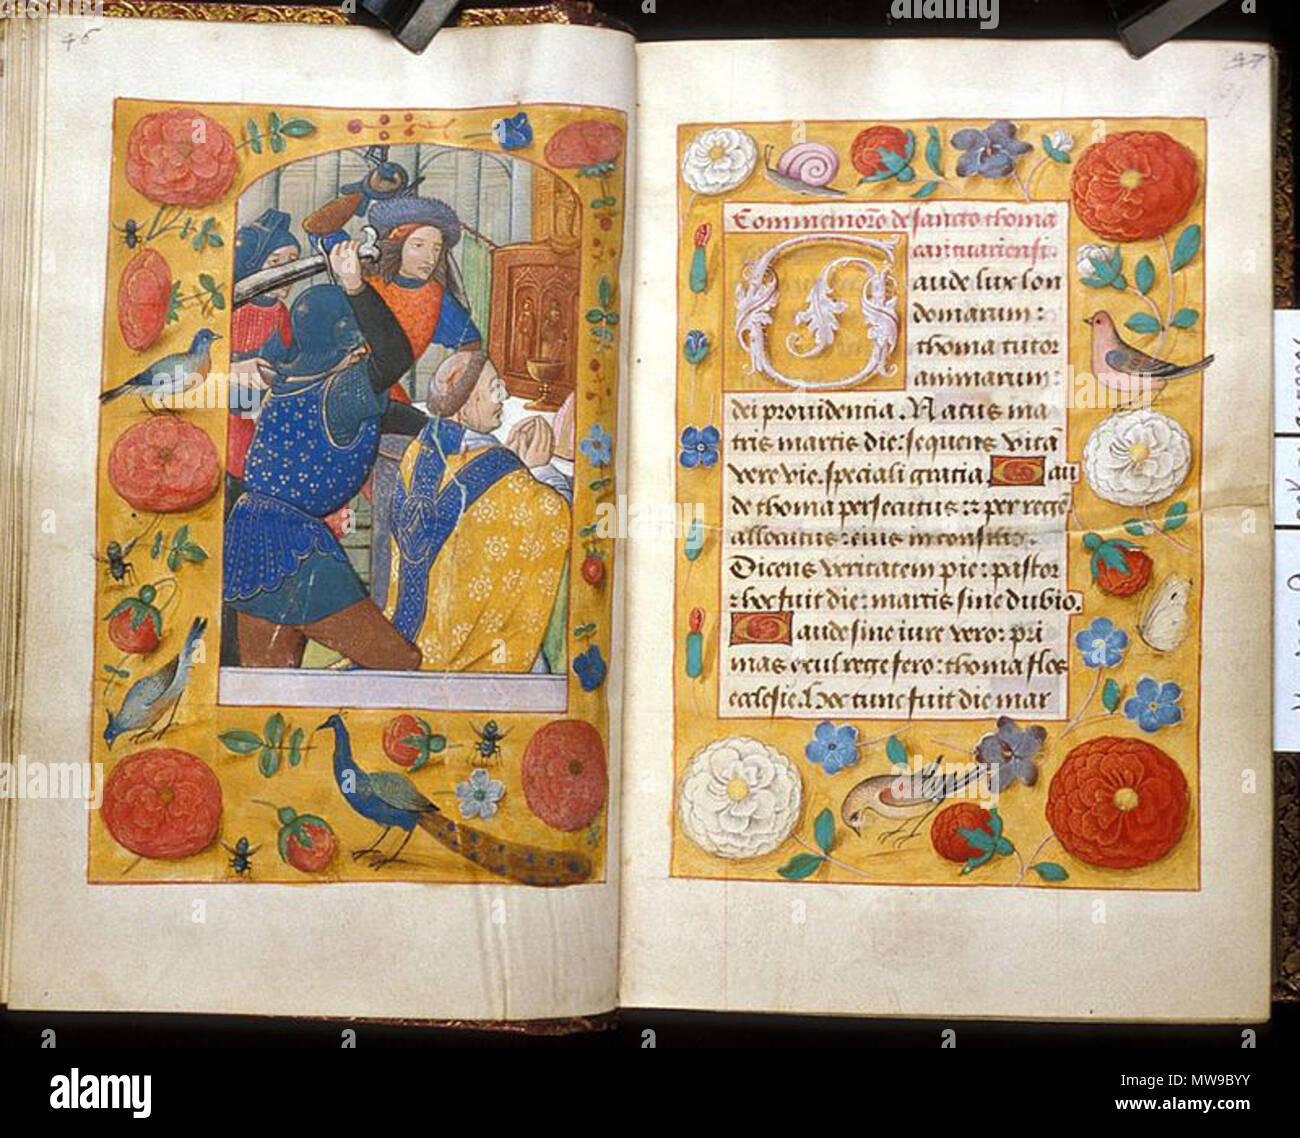 46
47
Commemoro de sancto thoma
cantuariensi.
Gaude lux lon
domarum:
thoma tutor
animarum:
dei providencia. Natus ma
tris martis die: sequens vitā
vere vie. speciali gratia Gau
de thoma persecutus: et per regē.
allocutus: eius in consilio.
Dicens veritatem pie: pastor
et hoc fuit die: martis sine dubio.
Gaude sine iure vero: pri
mas exul rege fero: thoma flos
ecclesie. Hoc tunc fuit die mar
alamy
Image ID: MW9BYY
www.alamy.com